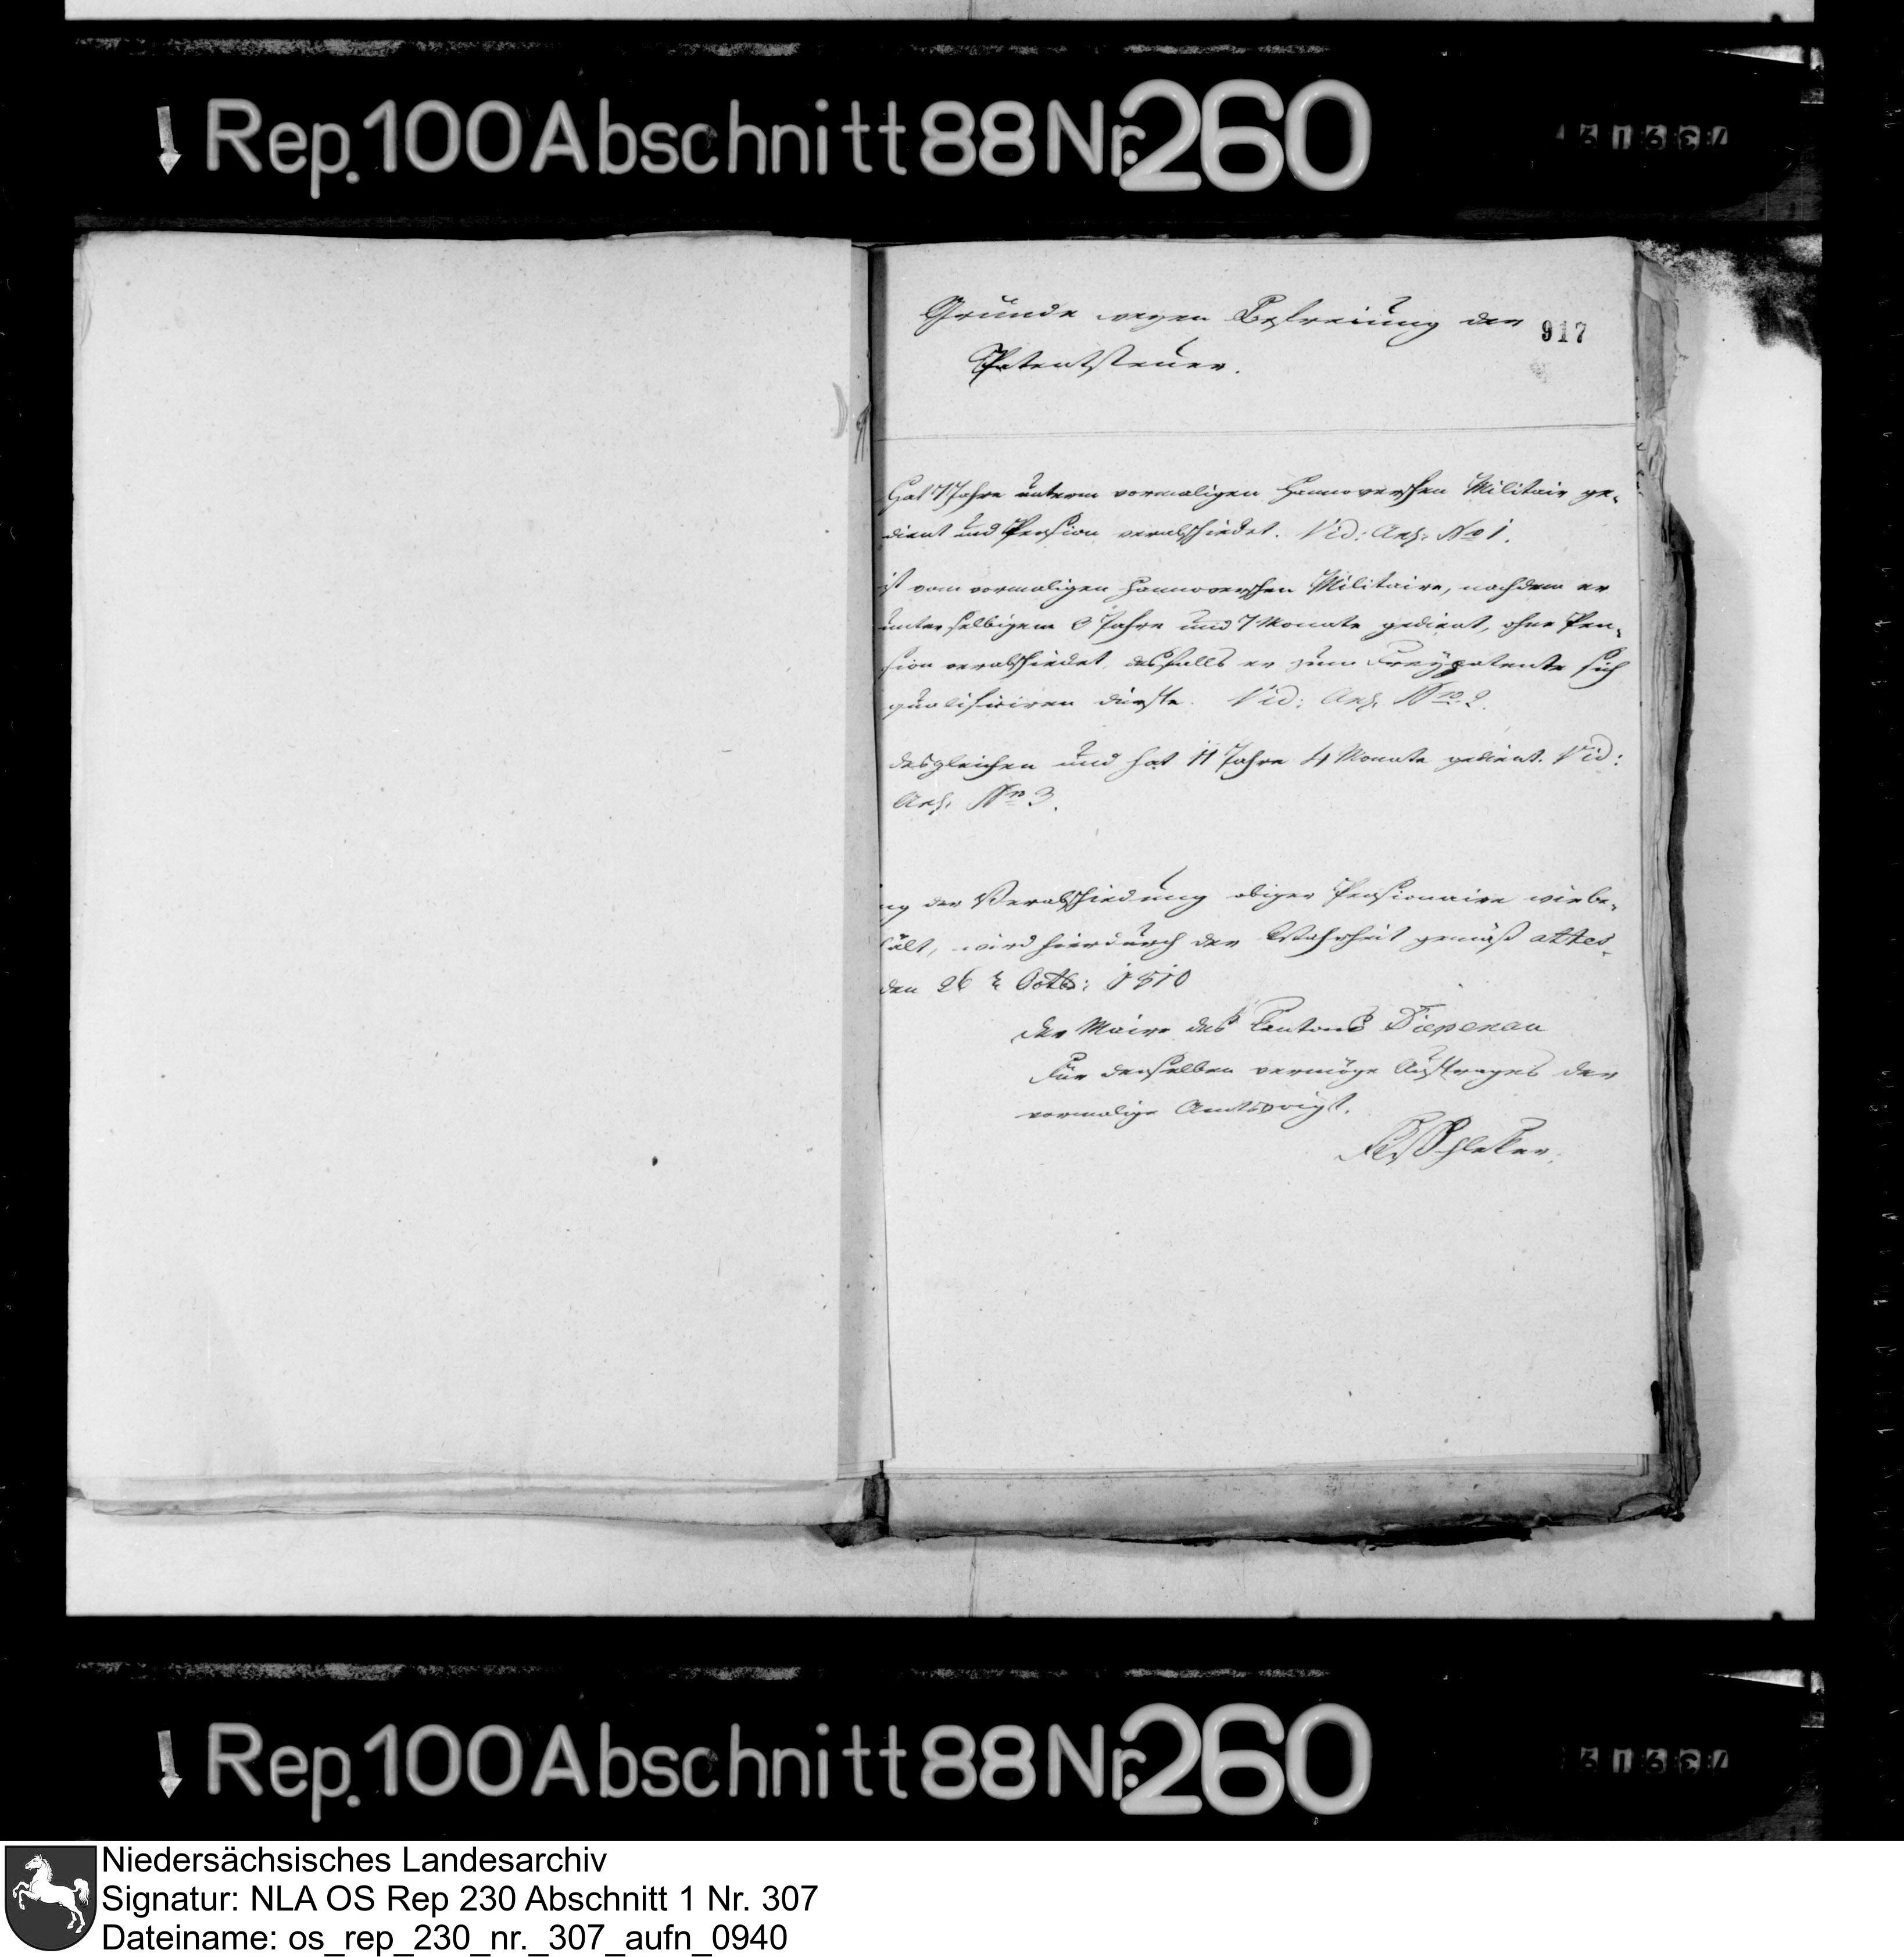 Rep. 100 Abschnitt 88 Nr. 260
Gründe wegen Befreiung der
917
Patentsteuer.
Hat 7 Jahre unterm vormaligen Hannoverschen Militair ge-
dient und Pension verabschiedet. Vid: Anl. No 1.
ist vom vormaligen Hannoverschen Militaire, nachdem er
unter selbigem Jahre und 7 Monate gedient, ohne Pen-
sion verabschiedet, desfalls er zum Freypatente sich
qualificiren dürfte. Vid: Anl. No. 2.
desgleichen und hat 11 Jahre 4 Monate gedient. Vid:
Anl. No 3.
ng der Verabschiedung obiger Pensionaire
wird hierdurch der Wahrheit gemäß attes-
den 26 Octb: 1810
Der Maire des Cantons Diepenau
Für denselben vermöge Auftrages der
vormalige Amtsvoigt.
Rep. 100 Abschnitt 88 Nr. 260
Niedersächsisches Landesarchiv
Signatur: NLA OS Rep 230 Abschnitt 1 Nr. 307
Dateiname: os_rep_230_nr._307_aufn_0940